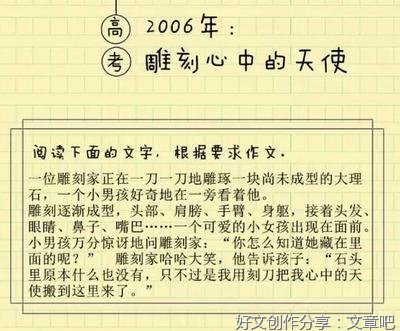 高考
2006年:
雕刻心中的天使
阅读下面的文字，根据要求作文。
一位雕刻家正在一刀一刀地雕琢一块尚未成型的大理
石，一个小男孩好奇地在一旁看着他。
雕刻逐渐成型，头部、肩膀、手臂、身躯，接着头发、
眼睛、鼻子、嘴巴……一个可爱的小女孩出现在面前。
小男孩万分惊讶地问雕刻家：“你怎么知道她藏在里
面的呢？” 雕刻家哈哈大笑，他告诉孩子：“石头
里原本什么也没有，只不过是我用刻刀把我心中的天
使搬到这里来了。”
好文创作分享：文章吧